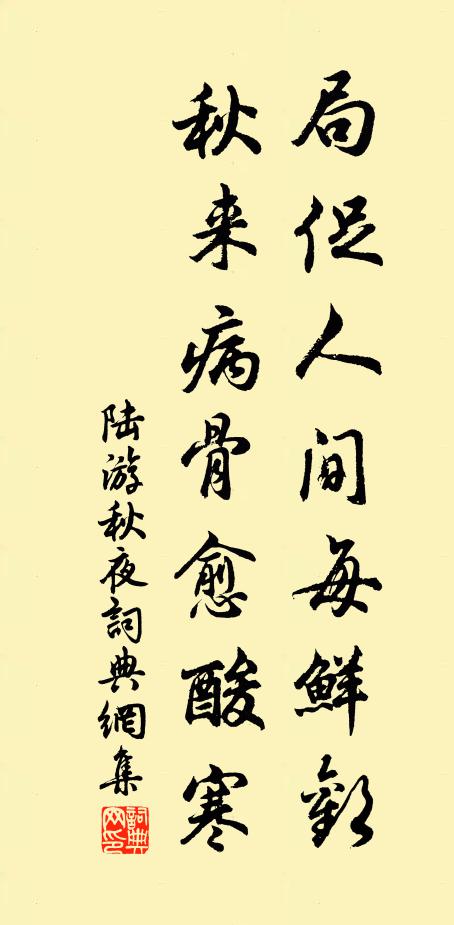 局促人间每鲜歡
秋来病骨愈酸寒
陆游秋夜詞典網集
詞典网印